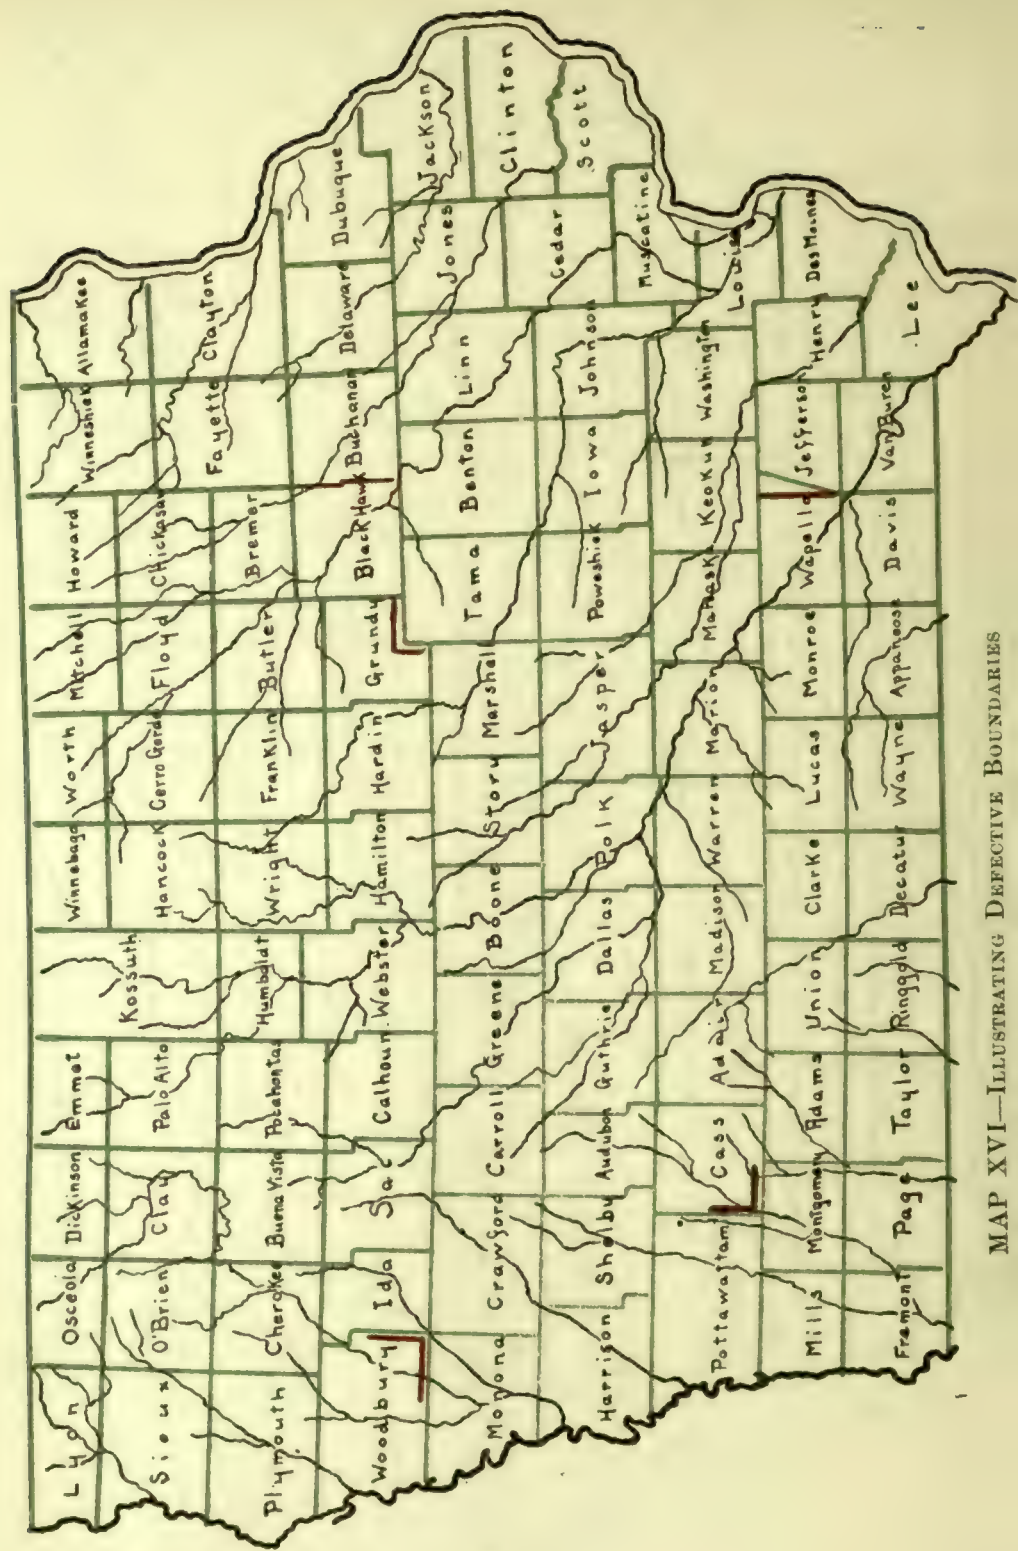 Lyon
Osceola
Dickinson
Emmet
Winnebago
Worth
Mitchell
Howard
Winneshiek
Allamakee
Sioux
O'Brien
Clay
Palo Alto
Kossuth
Hancock
Cerro Gordo
Floyd
Chickasaw
Fayette
Clayton
Plymouth
Cherokee
Buena Vista
Pocahontas
Humboldt
Wright
Franklin
Butler
Bremer
Woodbury
Ida
Sac
Calhoun
Webster
Hamilton
Hardin
Grundy
Black Hawk
Buchanan
Delaware
Dubuque
Monona
Crawford
Carroll
Greene
Boone
Story
Marshall
Tama
Benton
Linn
Jones
Jackson
Clinton
Harrison
Shelby
Audubon
Guthrie
Dallas
Polk
Jasper
Poweshiek
Iowa
Johnson
Cedar
Scott
Muscatine
Pottawattam
Cass
Adair
Madison
Warren
Marion
Mahaska
Keokuk
Washington
Louisa
Mills
Montgomery
Adams
Union
Clarke
Lucas
Monroe
Wapello
Jefferson
Henry
Des Moines
Fremont
Page
Taylor
Ringgold
Decatur
Wayne
Appanoose
Davis
Van Buren
Lee
MAP XVI—ILLUSTRATING DEFECTIVE BOUNDARIES